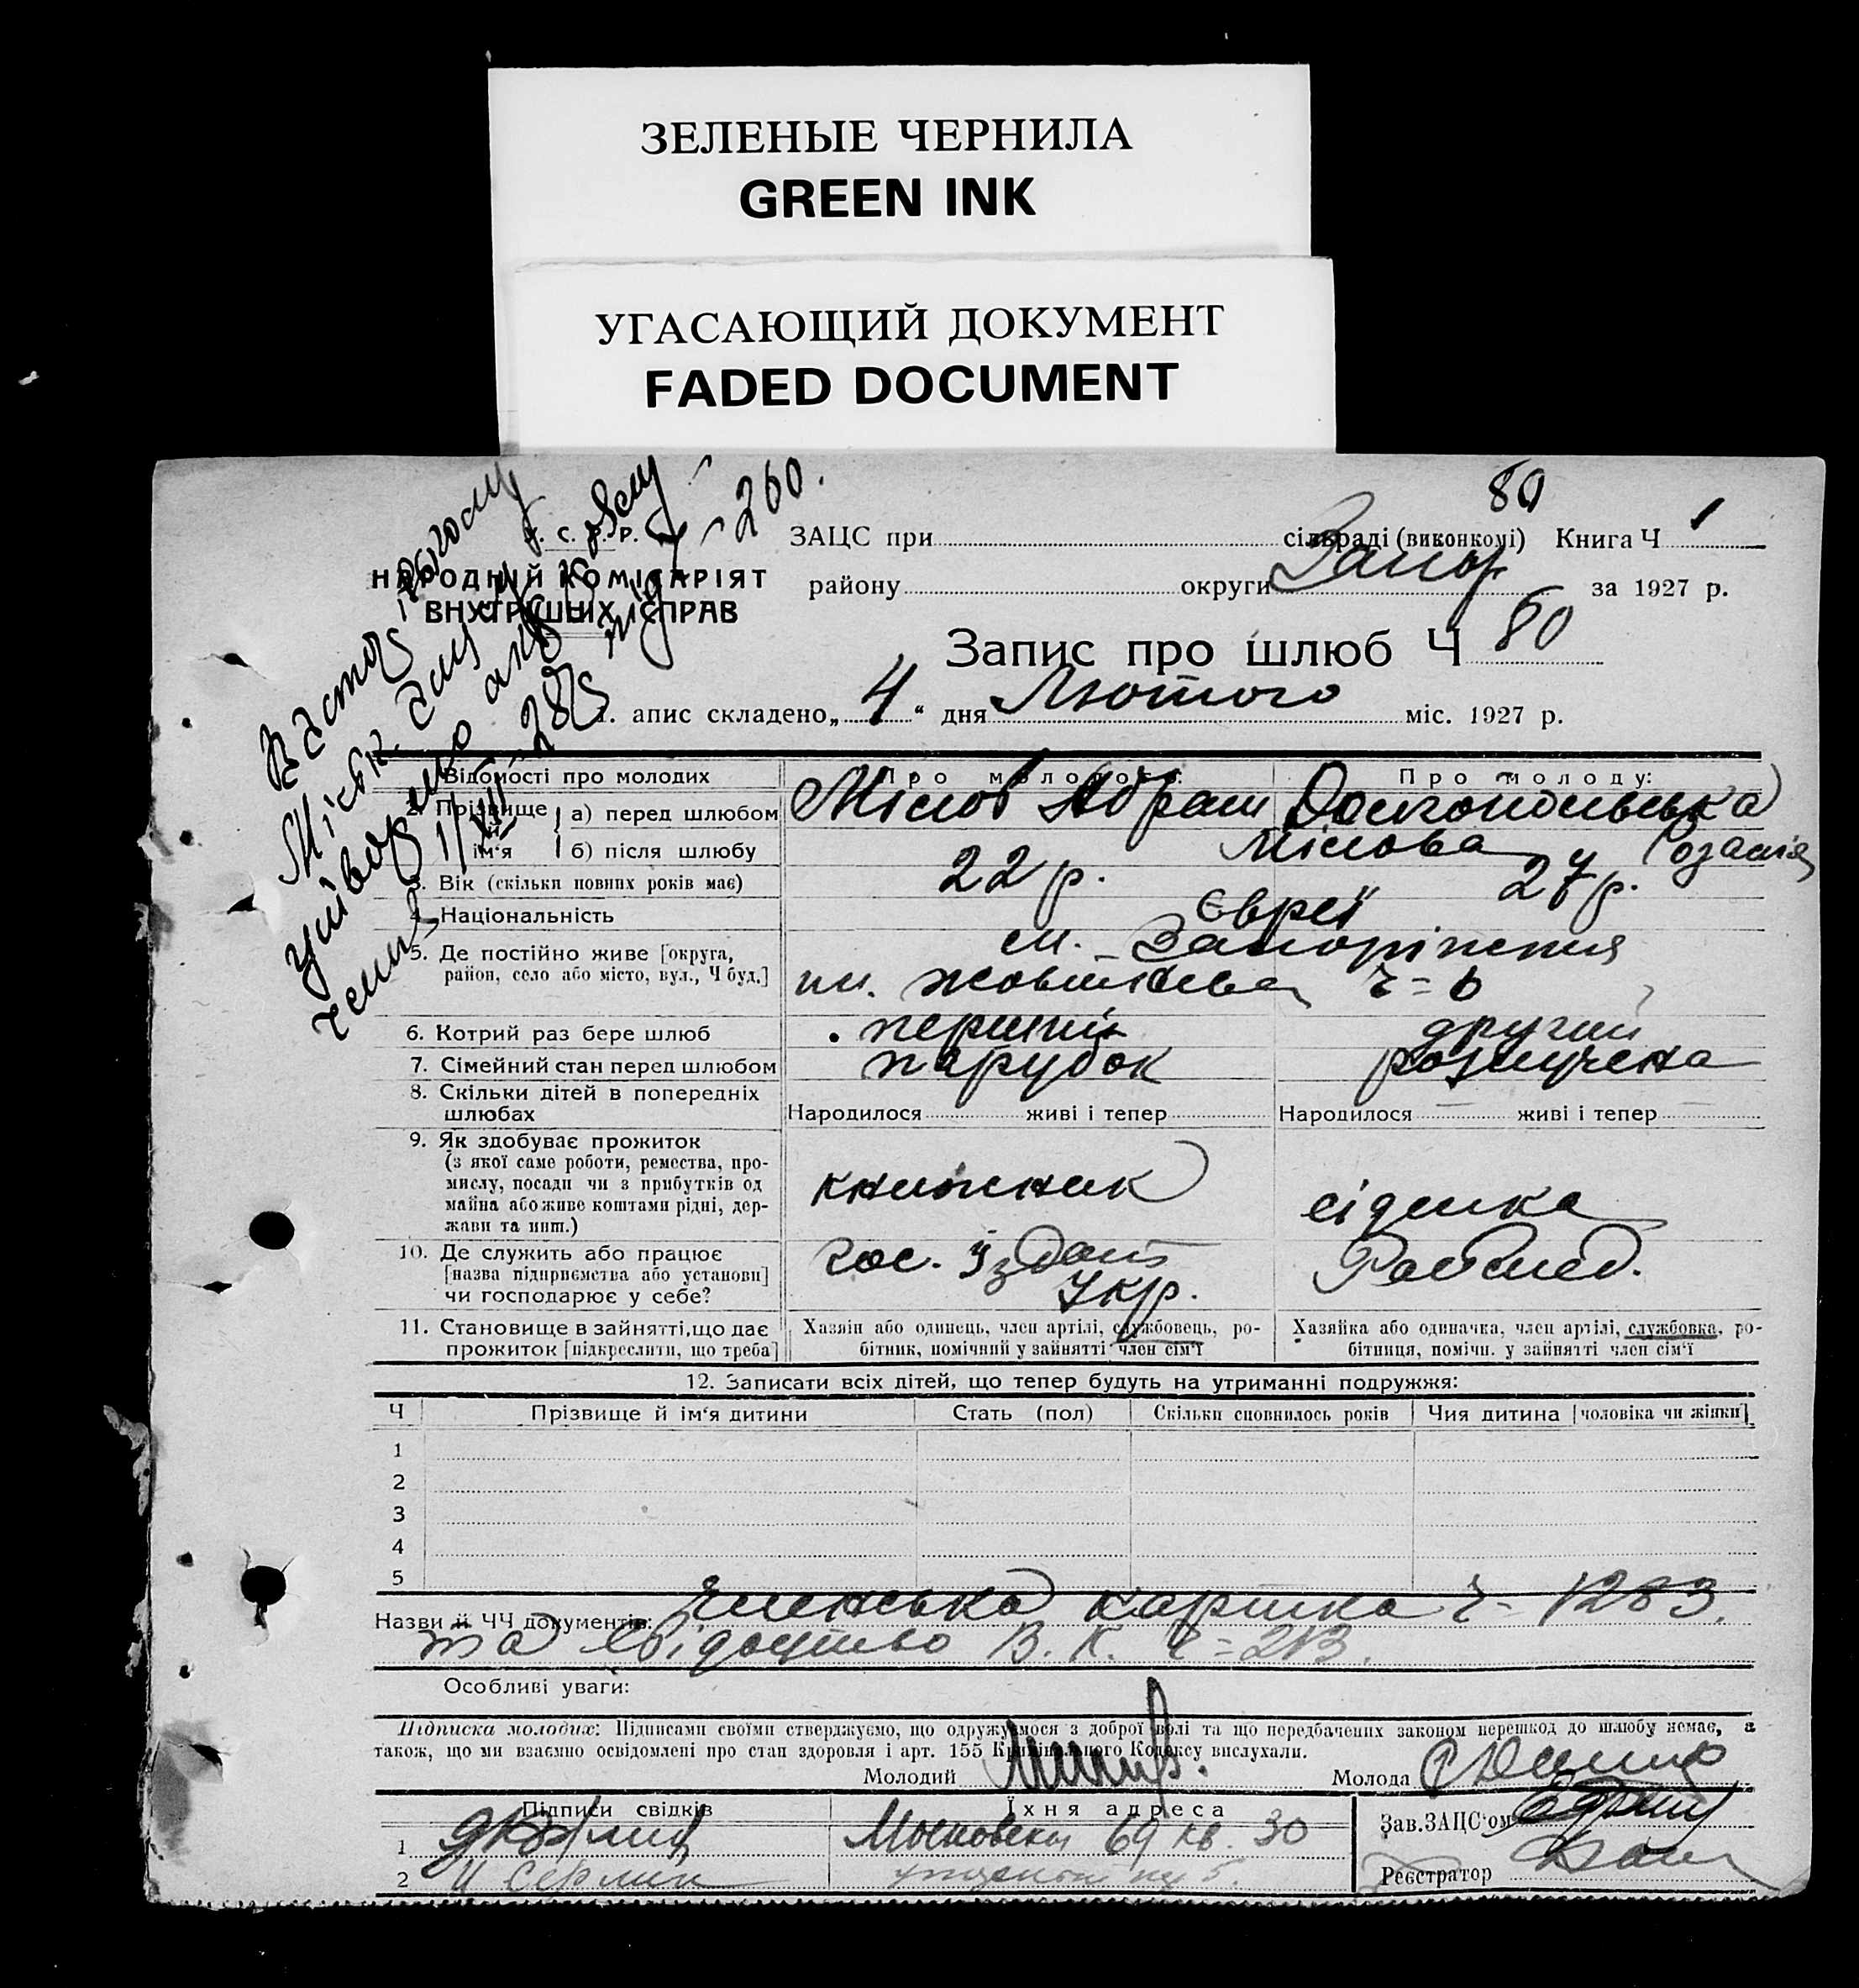 ЗЕЛЕНЫЕ ЧЕРНИЛА
GREEN INK
УГАСАЮЩИЙ ДОКУМЕНТ
FADED DOCUMENT
НАРОДНІЙ КОМІСАРІЯТ
ВНУТРІШНІХ СПРАВ
260.
80
ЗАЦС при сільраді (виконкомі) Книга Ч 1
району округи Запор за 1927 р.
Запис про шлюб Ч 80
апис складено „4“ дня Лютого міс. 1927 р.
Відомості про молодих Про молодого: Про молоду:
2. Прізвище й ім'я а) перед шлюбом Абрам
б) після шлюбу
3. Вік (скільки повних років має) 22 р. 27 р.
4. Національність Євреї
5. Де постійно живе [округа, м. Запоріжжя
район, село або місто, вул., Ч буд.] пл. Жовтнева ч = 6
6. Котрий раз бере шлюб перший другий
7. Сімейний стан перед шлюбом парубок розлучена
8. Скільки дітей в попередніх
шлюбах Народилося живі і тепер Народилося живі і тепер
9. Як здобуває прожиток
(з якої саме роботи, ремества, про-
мислу, посади чи з прибутків од
майна або живе коштами рідні, дер-
жави та инш.)
книжник сідилка
10. Де служить або працює
[назва підприємства або установи]
чи господарює у себе?
Гос. Издат
Укр.
11. Становище в зайнятті, що дає
прожиток [підкреслити, що треба]
Хазяїн або одинець, член артілі, службовець, ро-
бітник, помічний у зайнятті член сім'ї
Хазяйка або одиначка, член артілі, службовка, ро-
бітниця, помічн. у зайнятті член сім'ї
12. Записати всіх дітей, що тепер будуть на утриманні подружжя:
Ч Прізвище й ім'я дитини Стать (пол) Скільки сповнилось років Чия дитина [чоловіка чи жінки]
1
2
3
4
5
Назви й ЧЧ документів: Членська картка ч- 1283.
та свідоцтво В. К. ч = 213.
Особливі уваги:
Підписка молодих: Підписами своїми стверджуємо, що одружуємося з доброї волі та що передбачених законом перешкод до шлюбу немає, а
також, що ми взаємно освідомлені про стан здоров'я і арт. 155 Кримінального Кодексу вислухали.
Молодий Молода
Підписи свідків Їхня адреса Зав. ЗАЦС'ом
1 Московска 69 кв. 30
2 Реєстратор